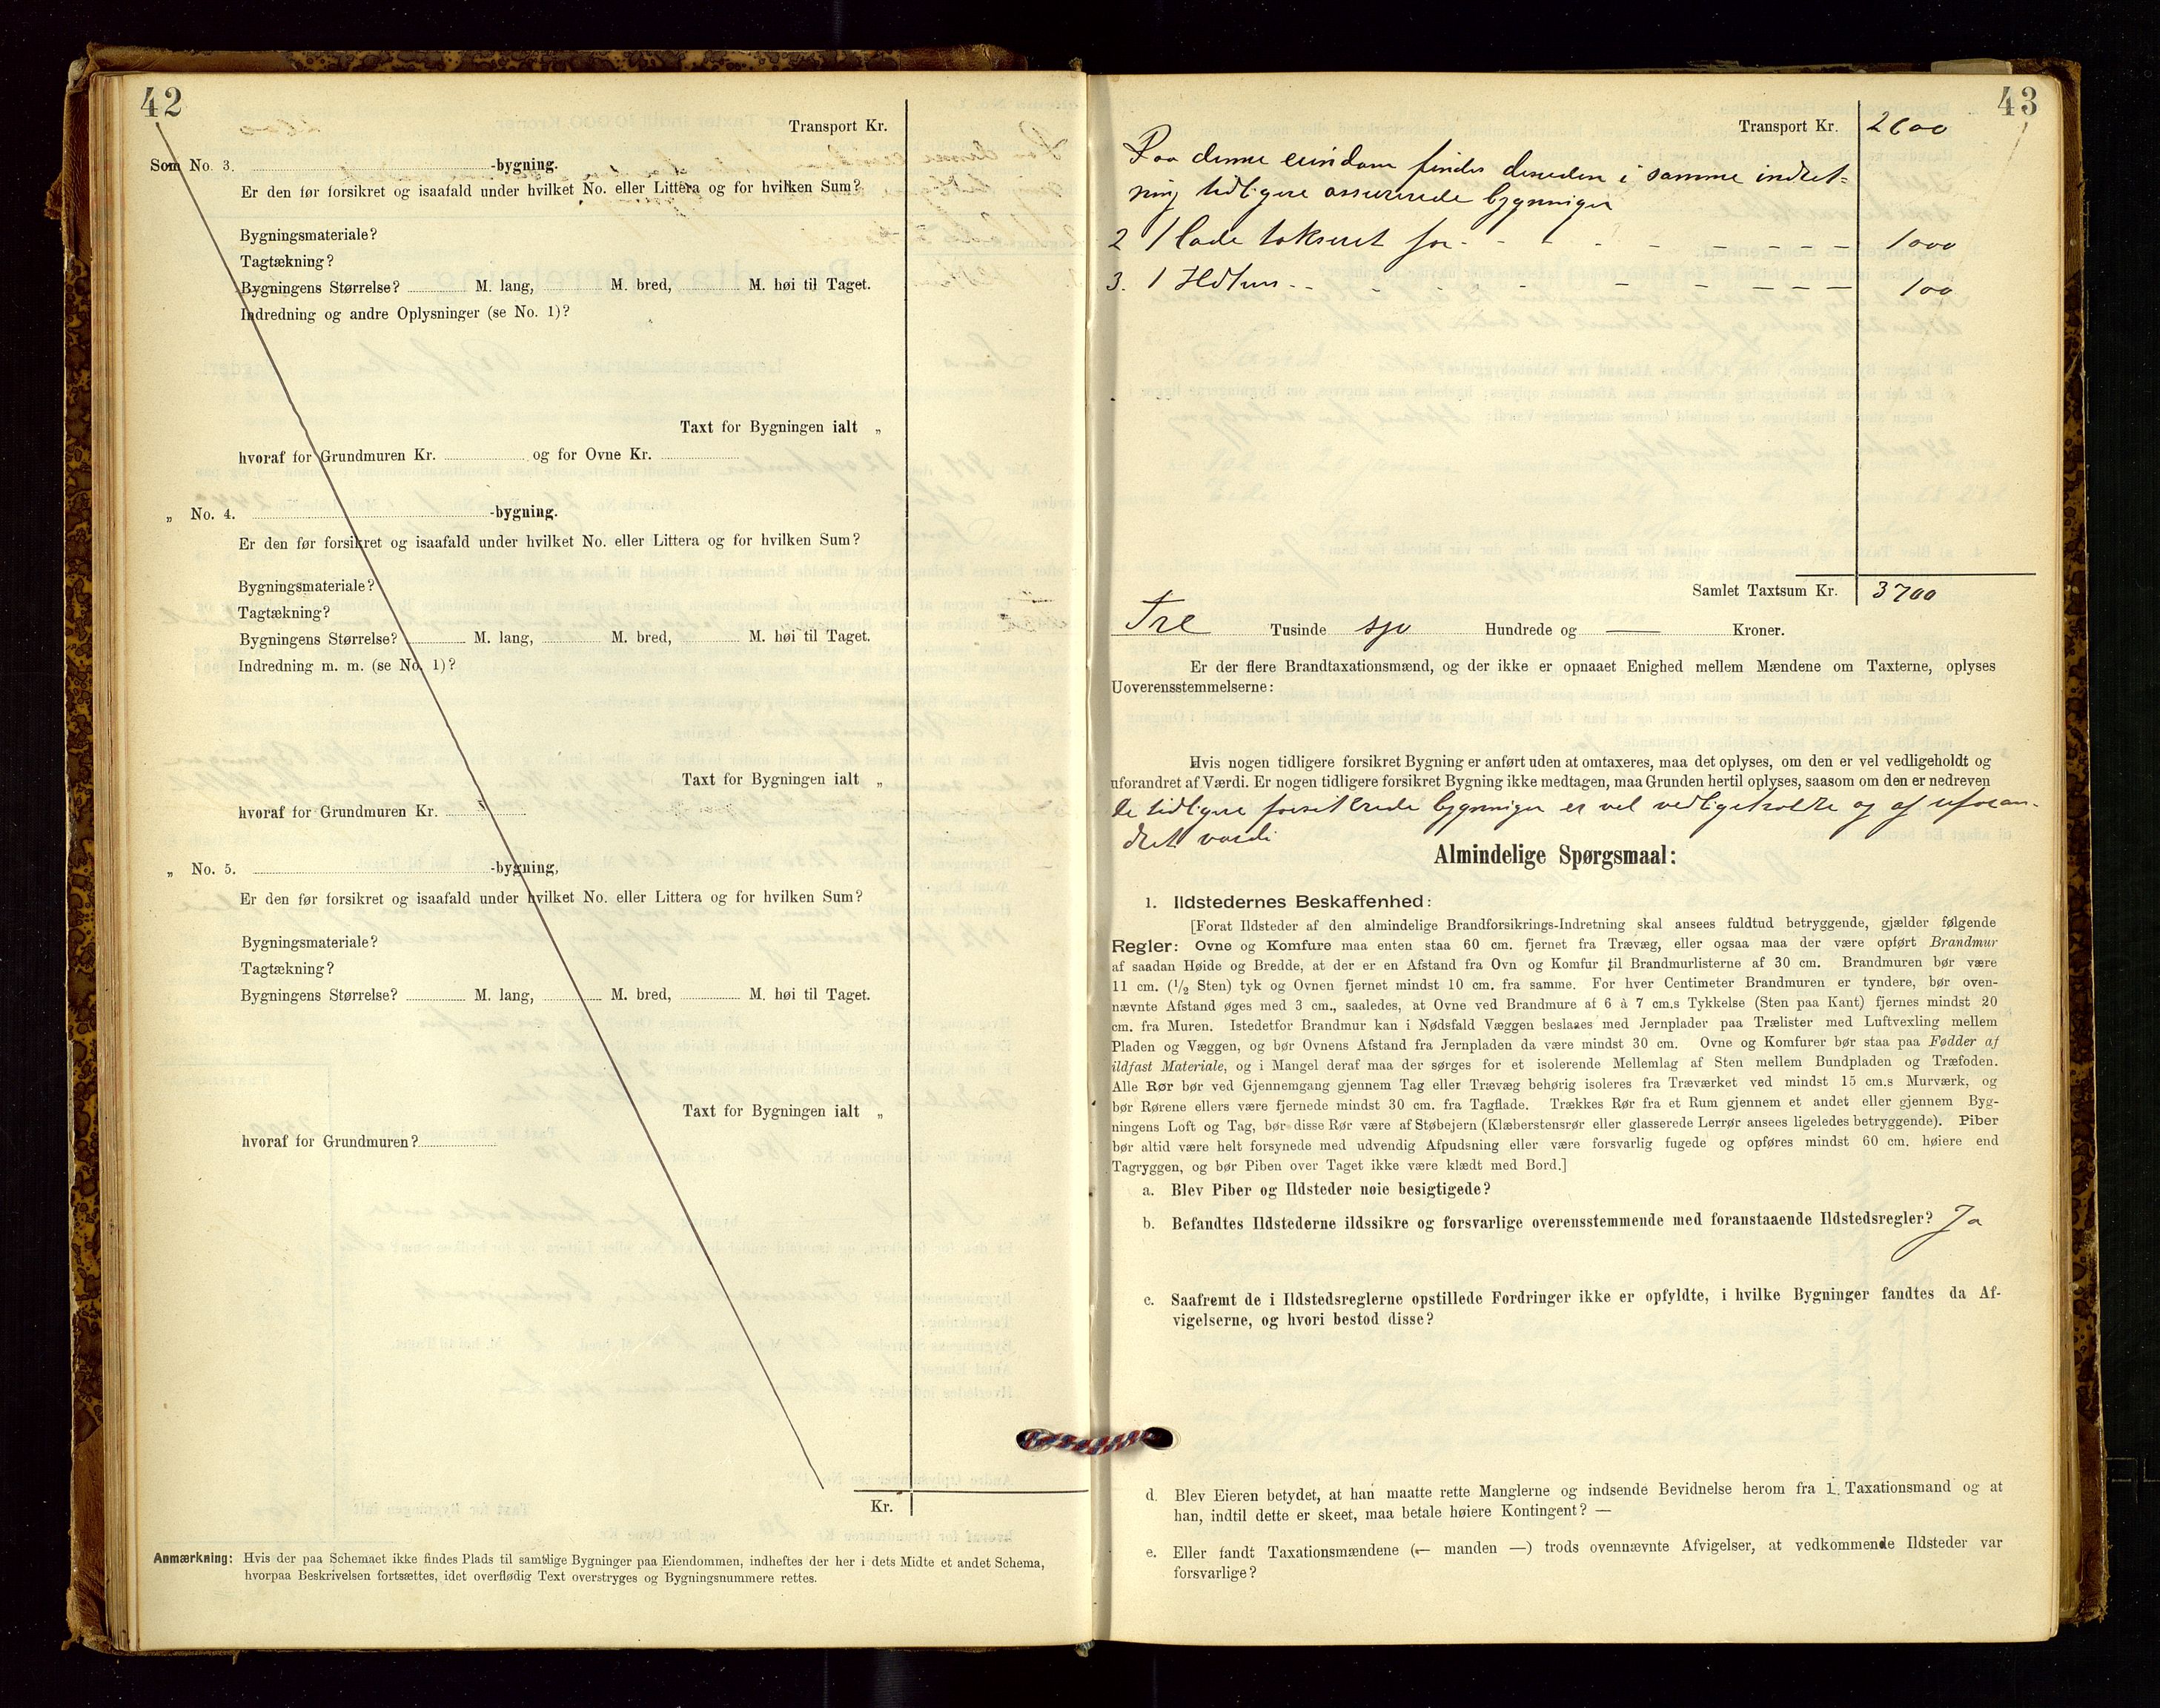 42
Transport Kr.
Som No. 3. -bygning.
Er den før forsikret og isaafald under hvilket No. eller Littera og for hvilken Sum?
Bygningsmateriale?
Tagtækning?
Bygningens Størrelse? M. lang, M. bred, M. høi til Taget.
Indredning og andre Oplysninger (se No. 1)?
Taxt for Bygningen ialt „
hvoraf for Grundmuren Kr. og for Ovne Kr.
„ No. 4. -bygning.
Er den før forsikret og isaafald under hvilket No. eller Littera og for hvilken Sum?
Bygningsmateriale?
Tagtækning?
Bygningens Størrelse? M. lang, M. bred, M. høi til Taget.
Indredning m. m. (se No. 1)?
Taxt for Bygningen ialt „
hvoraf for Grundmuren Kr.
„ No. 5. -bygning,
Er den før forsikret og isaafald under hvilket No. eller Littera og for hvilken Sum?
Bygningsmateriale?
Tagtækning?
Bygningens Størrelse? M. lang, M. bred, M. høi til Taget.
Taxt for Bygningen ialt „
hvoraf for Grundmuren?
Kr.
Anmærkning: Hvis der paa Schemaet ikke findes Plads til samtlige Bygninger paa Eiendommen, indheftes der her i dets Midte et andet Schema,
hvorpaa Beskrivelsen fortsættes, idet overflødig Text overstryges og Bygningsnummere rettes.
43
Transport Kr. 2600
Paa denne eiendom findes desuden i samme indret-
ning tidligere assurerede bygninger
2 1 lade takseret for - - - - - - - - 1000
3. 1 Ildhus - - - - - - - - - 100
Samlet Taxtsum Kr. 3700
Tre Tusinde syv Hundrede og — Kroner.
Er der flere Brandtaxationsmænd, og der ikke er opnaaet Enighed mellem Mændene om Taxterne, oplyses
Uoverensstemmelserne:
Hvis nogen tidligere forsikret Bygning er anført uden at omtaxeres, maa det oplyses, om den er vel vedligeholdt og
uforandret af Værdi. Er nogen tidligere forsikret Bygning ikke medtagen, maa Grunden hertil oplyses, saasom om den er nedreven
De tidligere forsikrede bygninger er vel vedligeholdte og af uforan-
dret værdi
Almindelige Spørgsmaal:
1. Ildstedernes Beskaffenhed:
[Forat Ildsteder af den almindelige Brandforsikrings-Indretning skal ansees fuldtud betryggende, gjælder følgende
Regler: Ovne og Komfure maa enten staa 60 cm. fjernet fra Trævæg, eller ogsaa maa der være opført Brandmur
af saadan Høide og Bredde, at der er en Afstand fra Ovn og Komfur til Brandmurlisterne af 30 cm. Brandmuren bør være
11 cm. (1/2 Sten) tyk og Ovnen fjernet mindst 10 cm. fra samme. For hver Centimeter Brandmuren er tyndere, bør oven-
nævnte Afstand øges med 3 cm., saaledes, at Ovne ved Brandmure af 6 à 7 cm.s Tykkelse (Sten paa Kant) fjernes mindst 20
cm. fra Muren. Istedetfor Brandmur kan i Nødsfald Væggen beslaaes med Jernplader paa Trælister med Luftvexling mellem
Pladen og Væggen, og bør Ovnens Afstand fra Jernpladen da være mindst 30 cm. Ovne og Komfurer bør staa paa Fødder af
ildfast Materiale, og i Mangel deraf maa der sørges for et isolerende Mellemlag af Sten mellem Bundpladen og Træfoden.
Alle Rør bør ved Gjennemgang gjennem Tag eller Trævæg behørig isoleres fra Træværket ved mindst 15 cm.s Murværk, og
bør Rørene ellers være fjernede mindst 30 cm. fra Tagflade. Trækkes Rør fra et Rum gjennem et andet eller gjennem Byg-
ningens Loft og Tag, bør disse Rør være af Støbejern (Klæberstensrør eller glasserede Lerrør ansees ligeledes betryggende). Piber
bør altid være helt forsynede med udvendig Afpudsning eller være forsvarlig fugede og opføres mindst 60 cm. høiere end
Tagryggen, og bør Piben over Taget ikke være klædt med Bord.]
a. Blev Piber og Ildsteder nøie besigtigede?
b. Befandtes Ildstederne ildssikre og forsvarlige overensstemmende med foranstaaende Ildstedsregler? Ja
c. Saafremt de i Ildstedsreglerne opstillede Fordringer ikke er opfyldte, i hvilke Bygninger fandtes da Af-
vigelserne, og hvori bestod disse?
d. Blev Eieren betydet, at han maatte rette Manglerne og indsende Bevidnelse herom fra 1. Taxationsmand og at
han, indtil dette er skeet, maa betale høiere Kontingent? —
e. Eller fandt Taxationsmændene (— manden —) trods ovennævnte Afvigelser, at vedkommende Ildsteder var
forsvarlige?